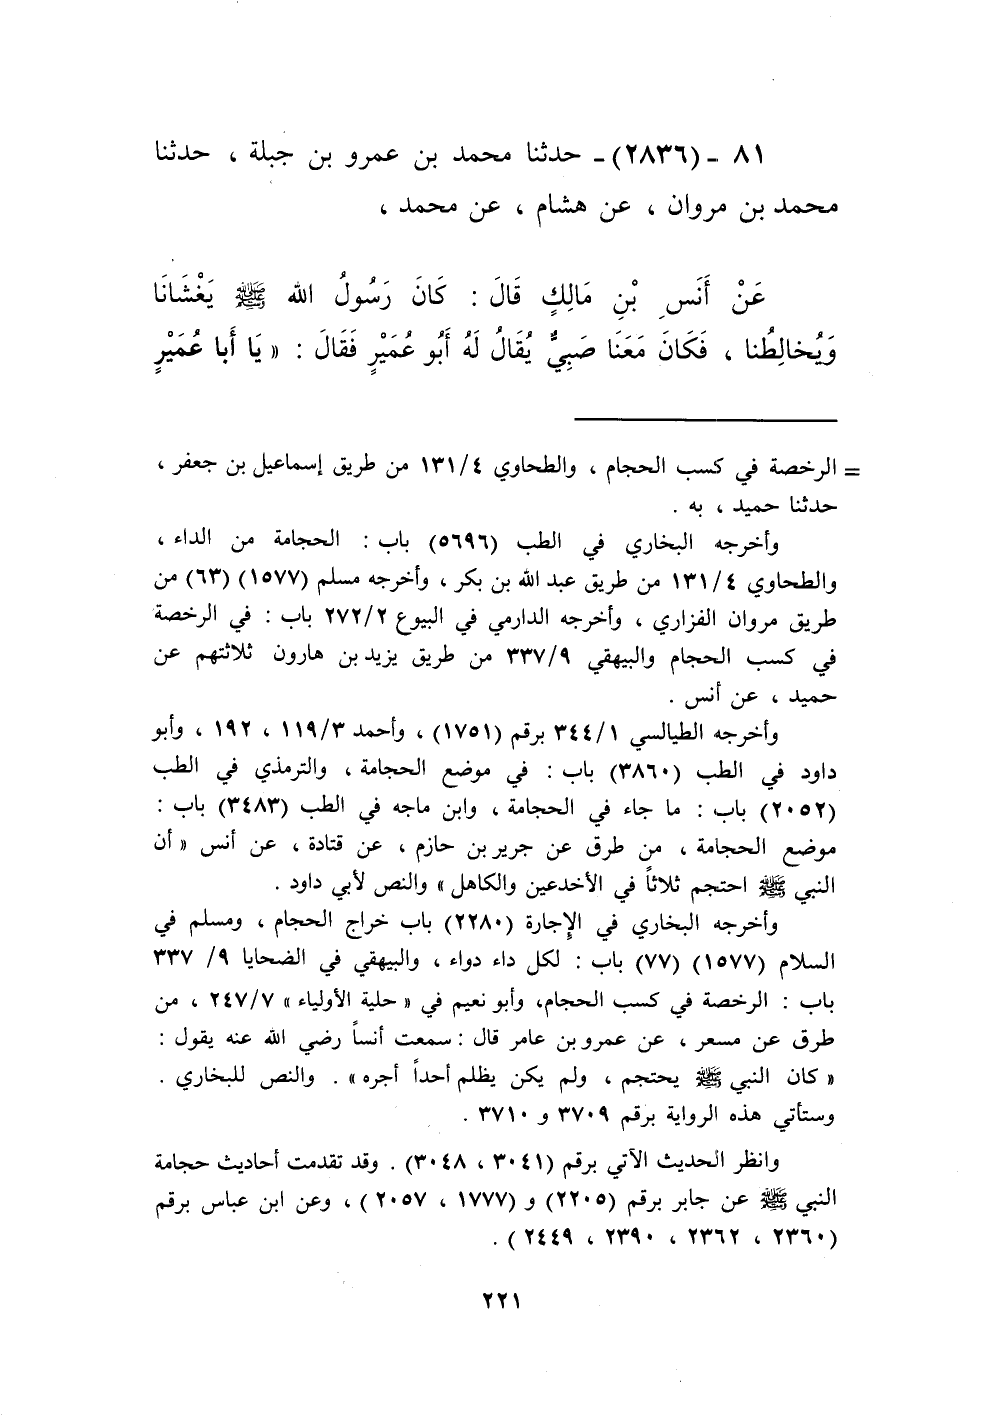 ٨١ - (٢٨٣٦) - حدثنا محمد بن عمرو بن جبلة ، حدثنا
محمد بن مروان ، عن هشام ، عن محمد ،
عَنْ أَنَسِ بْنِ مَالِكٍ قَالَ : كَانَ رَسُولُ الله ﷺ يَغْشَانَا
وَيُخالِطُنا ، فَكَانَ مَعَنَا صَبِيٌّ يُقَالُ لَهُ أَبُو عُمَيْرٍ فَقَالَ : « يَا أَبا عُمَيْرٍ
= الرخصة في كسب الحجام ، والطحاوي ١٣١/٤ من طريق إسماعيل بن جعفر ،
حدثنا حميد ، به .
وأخرجه البخاري في الطب (٥٦٩٦) باب : الحجامة من الداء ،
والطحاوي ١٣١/٤ من طريق عبد الله بن بكر ، وأخرجه مسلم (١٥٧٧) (٦٣) من
طريق مروان الفزاري ، وأخرجه الدارمي في البيوع ٢٧٢/٢ باب : في الرخصة
في كسب الحجام والبيهقي ٣٣٧/٩ من طريق يزيد بن هارون ثلاثتهم عن
حميد ، عن أنس .
وأخرجه الطيالسي ٣٤٤/١ برقم (١٧٥١) ، وأحمد ١١٩/٣ ، ١٩٢ ، وأبو
داود في الطب (٣٨٦٠) باب : في موضع الحجامة ، والترمذي في الطب
(٢٠٥٢) باب : ما جاء في الحجامة ، وابن ماجه في الطب (٣٤٨٣) باب :
موضع الحجامة ، من طرق عن جرير بن حازم ، عن قتادة ، عن أنس « أن
النبي ﷺ احتجم ثلاثاً في الأخدعين والكاهل » والنص لأبي داود .
وأخرجه البخاري في الإجارة (٢٢٨٠) باب خراج الحجام ، ومسلم في
السلام (١٥٧٧) (٧٧) باب : لكل داء دواء ، والبيهقي في الضحايا ٩/ ٣٣٧
باب : الرخصة في كسب الحجام، وأبو نعيم في « حلية الأولياء » ٢٤٧/٧ ، من
طرق عن مسعر ، عن عمرو بن عامر قال : سمعت أنساً رضي الله عنه يقول :
« كان النبي ﷺ يحتجم ، ولم يكن يظلم أحداً أجره » . والنص للبخاري .
وستأتي هذه الرواية برقم ٣٧٠٩ و ٣٧١٠ .
وانظر الحديث الآتي برقم (٣٠٤١ ، ٣٠٤٨) . وقد تقدمت أحاديث حجامة
النبي ﷺ عن جابر برقم (٢٢٠٥) و (١٧٧٧ ، ٢٠٥٧ ) ، وعن ابن عباس برقم
(٢٣٦٠ ، ٢٣٦٢ ، ٢٣٩٠ ، ٢٤٤٩ ) .
٢٢١